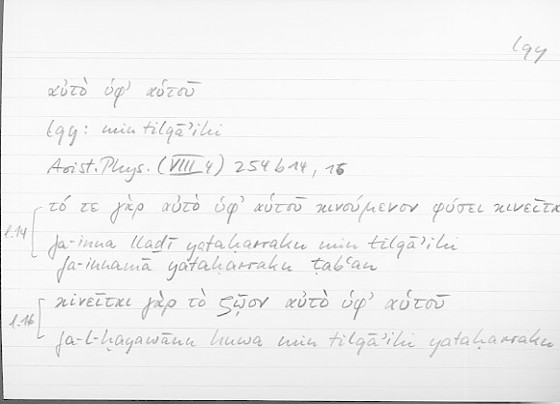 lqy
αὐτὸ ὑφ' αὑτοῦ
lqy: min tilqāʾihi
Arist. Phys. (VIII 4) 254 b 14, 16
τό τε γὰρ αὐτὸ ὑφ' αὑτοῦ κινούμενον φύσει κινεῖται
l.14 fa-inna lladī yataḥarraku min tilqāʾihi
fa-innamā yataḥarraku ṭabʿan
κινεῖται γὰρ τὸ ζῷον αὐτὸ ὑφ' αὑτοῦ
l.16 fa-l-ḥayawānu huwa min tilqāʾihi yataḥarraku